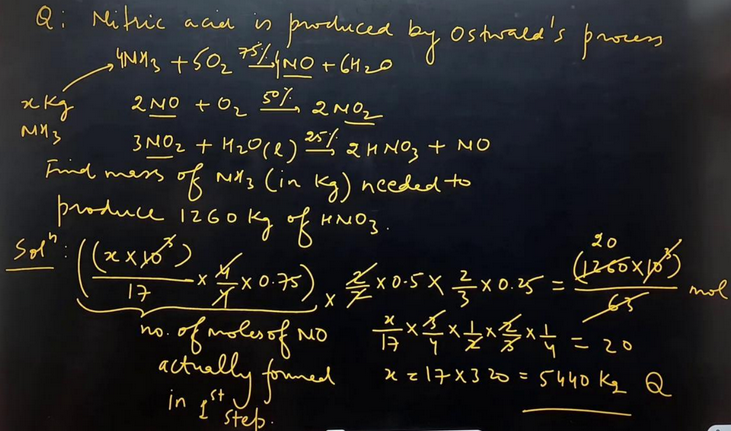 Q: Nitric acid is produced by Ostwald's process
4NH3 + 5O2 75%→ 4NO + 6H2O
x Kg
NH3
2NO + O2 50%→ 2NO2
3NO2 + H2O(l) 25%→ 2HNO3 + NO
Find mass of NH3 (in Kg) needed to
produce 1260 kg of HNO3.
Solⁿ: ((x × 10³)/17 × 4/4 × 0.75) × 2/2 × 0.5 × 2/3 × 0.25 = (1260 × 10³)/63 mol
20
no. of moles of NO
actually formed
in 1st step.
x/17 × 3/4 × 1/2 × 2/3 × 1/4 = 20
x = 17 × 320 = 5440 Kg Q